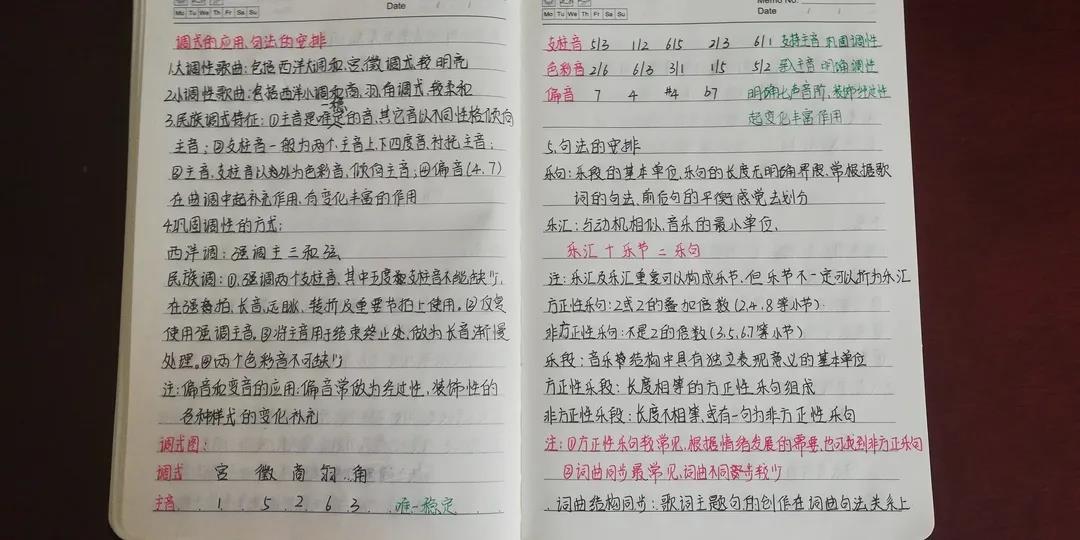 Date / /
Mo Tu We Th Fr Sa Su
调式的应用、句法的安排
1.大调性歌曲:包括西洋大调和宫、徵调式较明亮
2.小调性歌曲:包括西洋小调和商、羽、角调式、较柔和
3.民族调式特征:①主音是唯一稳定的音,其它音以不同性格倾向
主音;②支柱音一般为两个,主音上、下四度音,衬托主音;
③主音、支柱音以外为色彩音,倾向主音;④偏音(4、7)
在曲调中起补充作用、有变化丰富的作用
4.巩固调性的方式:
西洋调:强调主三和弦
民族调:①.强调两个支柱音,其中五度支柱音不能缺少,
在强拍、长音、起脉、转折及重要节拍上使用。②反复
使用强调主音。③将主音用于结束终止处,做为长音渐慢
处理。④两个色彩音不可缺少
注:偏音和变音的应用:偏音常做为经过性、装饰性的
各种样式的变化补充
调式图:
调式 宫 徵 商 羽 角
主音 1 5 2 6 3 唯一稳定
Memo No.
Date / /
Mo Tu We Th Fr Sa Su
支柱音 5/3 1/2 6/5 2/3 6/1 支持主音 巩固调性
色彩音 2/6 6/3 3/1 1/5 5/2 主音 明确调性
偏音 7 4 #4 b7 明确七声音阶、装饰经过性
起变化丰富作用
5.句法的安排
乐句:乐段的基本单位,乐句的长度无明确界限,常根据歌
词的句法,前后句的平衡感觉去划分
乐汇:与动机相似,音乐的最小单位,
乐汇+乐节=乐句
注:乐汇及乐汇重复可以构成乐节,但乐节不一定可以折为乐汇
方正性乐句:2或2的叠加倍数(2,4,8等小节)
非方正性乐句:不是2的倍数(3,5,6,7等小节)
乐段:音乐结构中具有独立表现意义的基本单位
方正性乐段:长度相等的方正性乐句组成
非方正性乐段:长度不相等,或有一句为非方正性乐句
注:①方正性乐句较常见,根据情绪发展的需要,也可找到非方正乐句
②词曲同步最常见,词曲不同步较少
词曲结构同步:歌词主题句的创作在词曲句法关系上